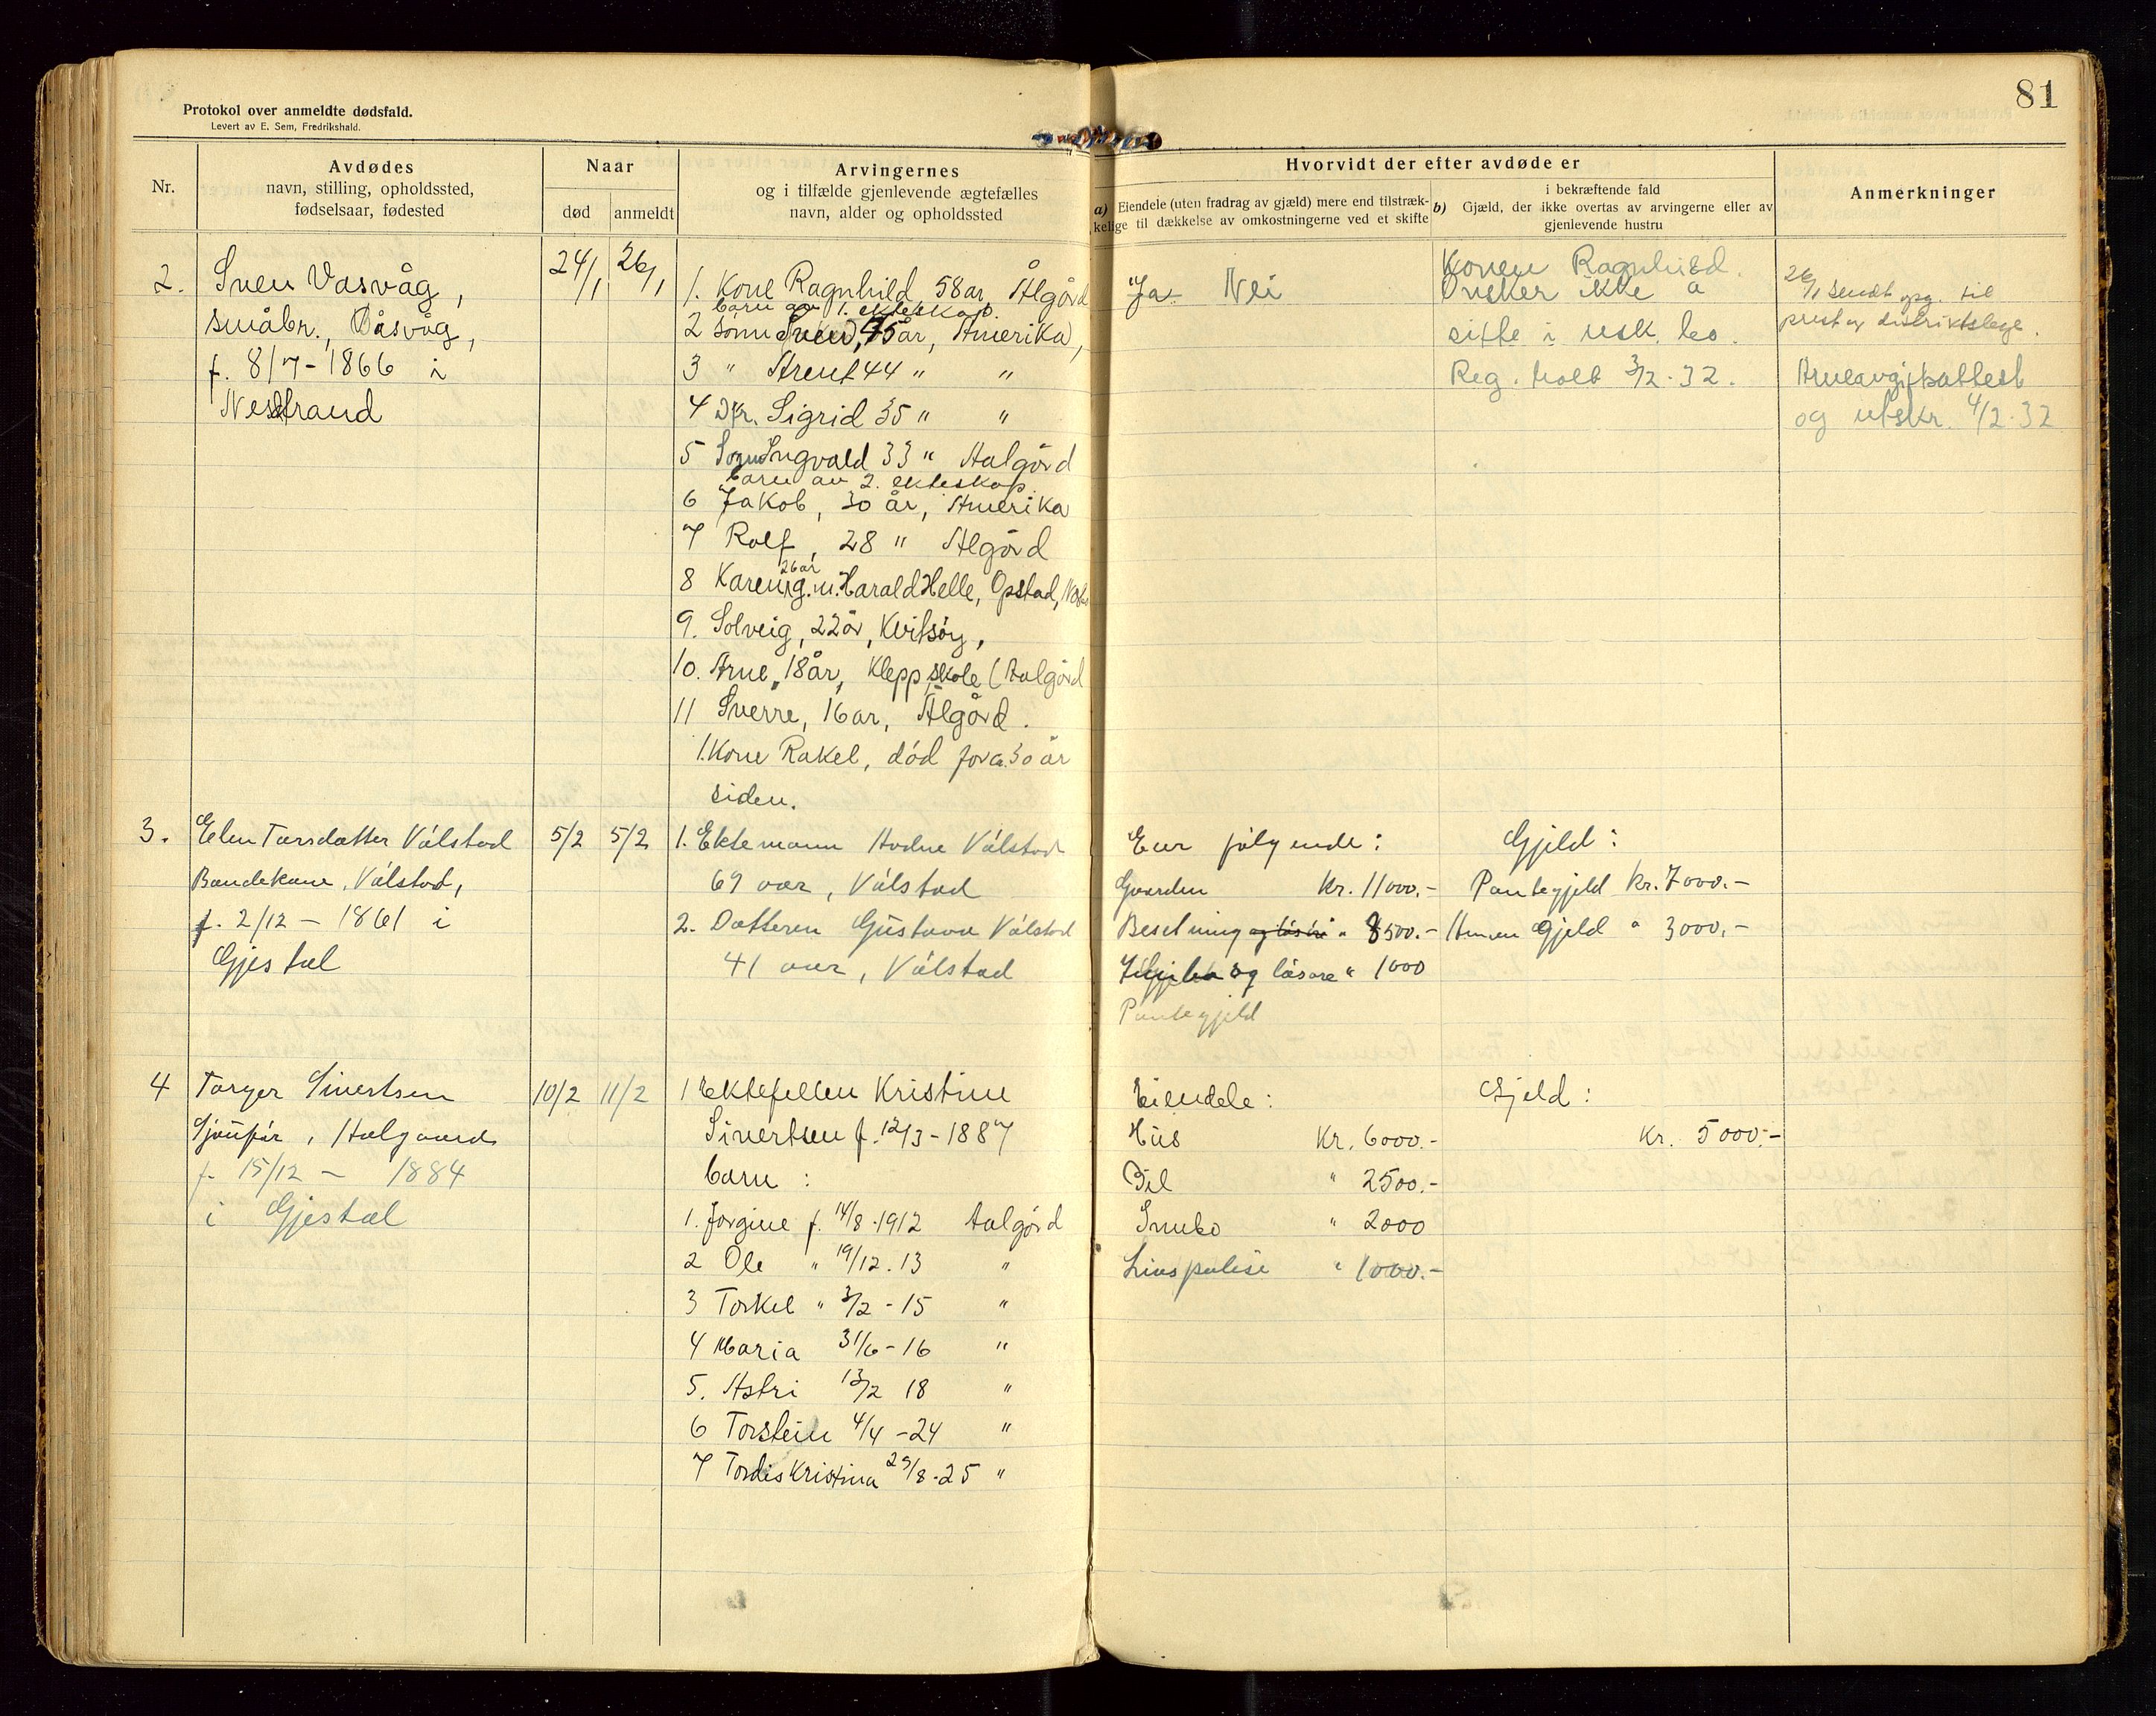 81
Protokol over anmeldte dødsfald.
Levert av E. Sem, Fredrikshald.
Nr.
Avdødes
navn, stilling, opholdssted,
fødselsaar, fødested
Naar
død
anmeldt
Arvingernes
og i tilfælde gjenlevende ægtefælles
navn, alder og opholdssted
Hvorvidt der efter avdøde er
a) Eiendele (uten fradrag av gjæld) mere end tilstræk-
kelige til dækkelse av omkostningerne ved et skifte
i bekræftende fald
b) Gjæld, der ikke overtas av arvingerne eller av
gjenlevende hustru
Anmerkninger
2.
Sven Vasvåg,
småbr., Våsvåg,
f. 8/7-1866 i
Nesstrand
24/1
26/1
1. Kone Ragnhild 58 ar, Ålgård
barn av 1. ekteskap.
2 sønn Sven, 45 år, Amerika,
3 " Arent 44 " "
4 Dtr. Sigrid 35 " "
5 Sønn Ingvald 33 " Aalgård
barn av 2. ekteskap
6 Jakob, 30 år, Amerika
7 Rolf, 28 " Ålgård
8 Karen, 26 ar g.m. Harald Helle, Opstad,
9. Solveig, 22 år, Kvitsøy,
10. Arne, 18 år, Klepp skole (Aalgård
11 Sverre, 16 ar, Ålgård.
1. Kone Rakel, død for ca. 30 år
siden.
Ja Nei
Konen Ragnhild
Ønsker ikke å
sitte i usk. bo.
Reg. holt 3/2-32.
26/1 sendt opg. til
prest og distriktslege.
Arveavgiftsattest
og utskr. 4/2-32
3.
Elen Torsdatter Válstad
Bondekone, Válstad,
f. 2/12 - 1861 i
Gjestal
5/2
5/2
1. Ektemann Hodne Válstad
69 aar, Válstad
2. Datteren Gustava Válstad
41 aar, Válstad
Eier følgende:
Gaarden Kr. 11000.-
Besetning og løsøre " 8500.-
og løsøre " 1000
Pantegjeld
Gjeld:
Pantegjeld Kr. 7000.-
Annen Gjeld " 3000.-
4
Torger Sivertsen
Sjåufør, Aalgaard
f. 15/12 - 1884
i Gjestal
10/2
11/2
1 Ektefellen Kristine
Sivertsen f. 12/3-1887
barn:
1. Jorgine f. 14/8-1912 Aalgård
2 Ole " 19/12.13 "
3 Torkel " 3/2-15 "
4 Maria 31/6-16 "
5. Astri 13/2 18 "
6 Torstein 4/4-24 "
7 Tordis Kristina 29/8-25 "
Eiendele:
Hus Kr. 6000.-
Bil " 2500.-
Innbo " 2000
Livspolise " 1000.-
Gjeld:
Kr. 5000.-